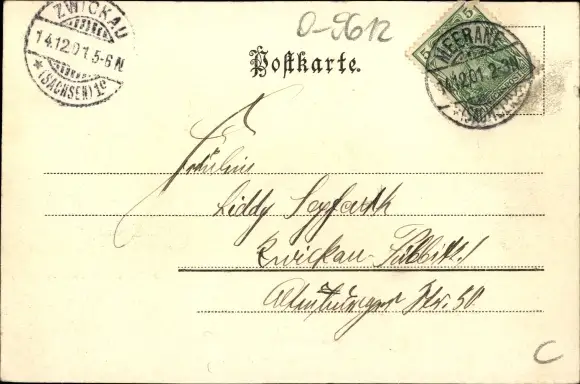 ZWICKAU
14.12.01.5-6N
*(SACHSEN)1c
O-9612
5 5
MEERANE
14.12.01. 2-3N
Postkarte.
Fräulein
Liddy Seyfarth
Zwickau-Pölbitz.
Altenburger Str. 50
C